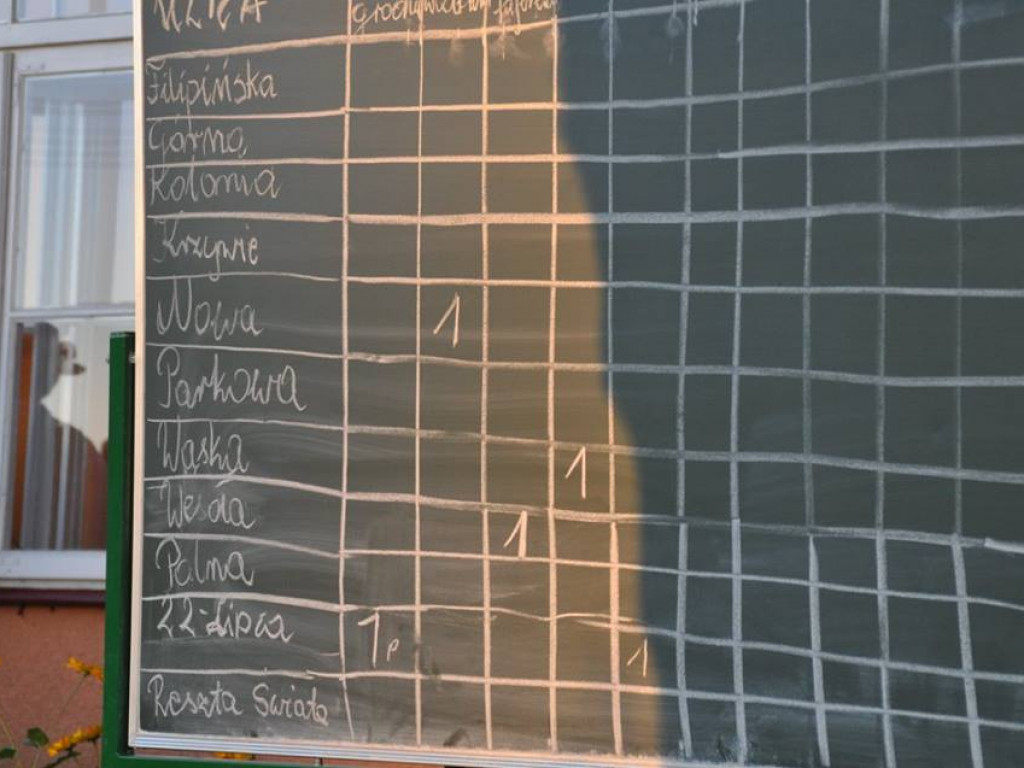 Filipińska
Górna
Kolonia
Krzywie
Nowa 1
Parkowa
Wąska 1
Wesoła 1
Polna
22-Lipca 1p 1
Reszta Świata